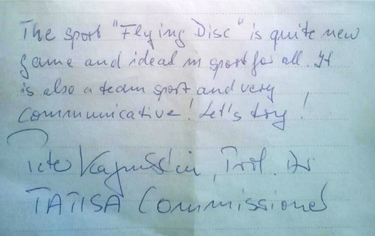 The sport "Flying Disc" is quite new
game and ideal in sport for all. It
is also a team sport and very
communicative! Let's try!
Prof. Dr
TAFISA Commissioner